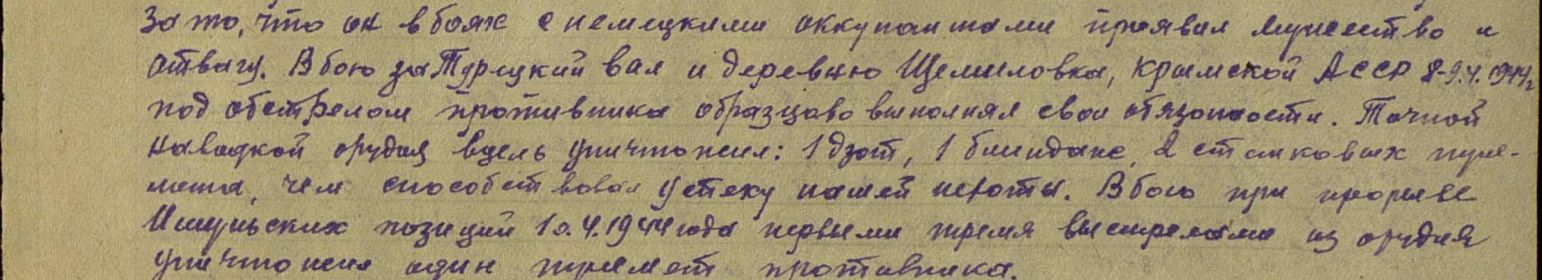 За то, что он в боях с немецкими оккупантами проявил мужество и
отвагу. В бою за Турецкий вал и деревню Щемиловка, Крымской АССР 8-9.4.1944г
под обстрелом противника образцово выполнял свои обязоности. Точной
наводкой орудия в цель уничтожил: 1 дзот, 1 блиндаж, 2 станковых пуле-
мета, чем способствовал успеху нашей пехоты. В бою при прорыве
Ишуньских позиций 10.4.1944 года первыми тремя выстрелами из орудия
уничтожил один пулемет противника.